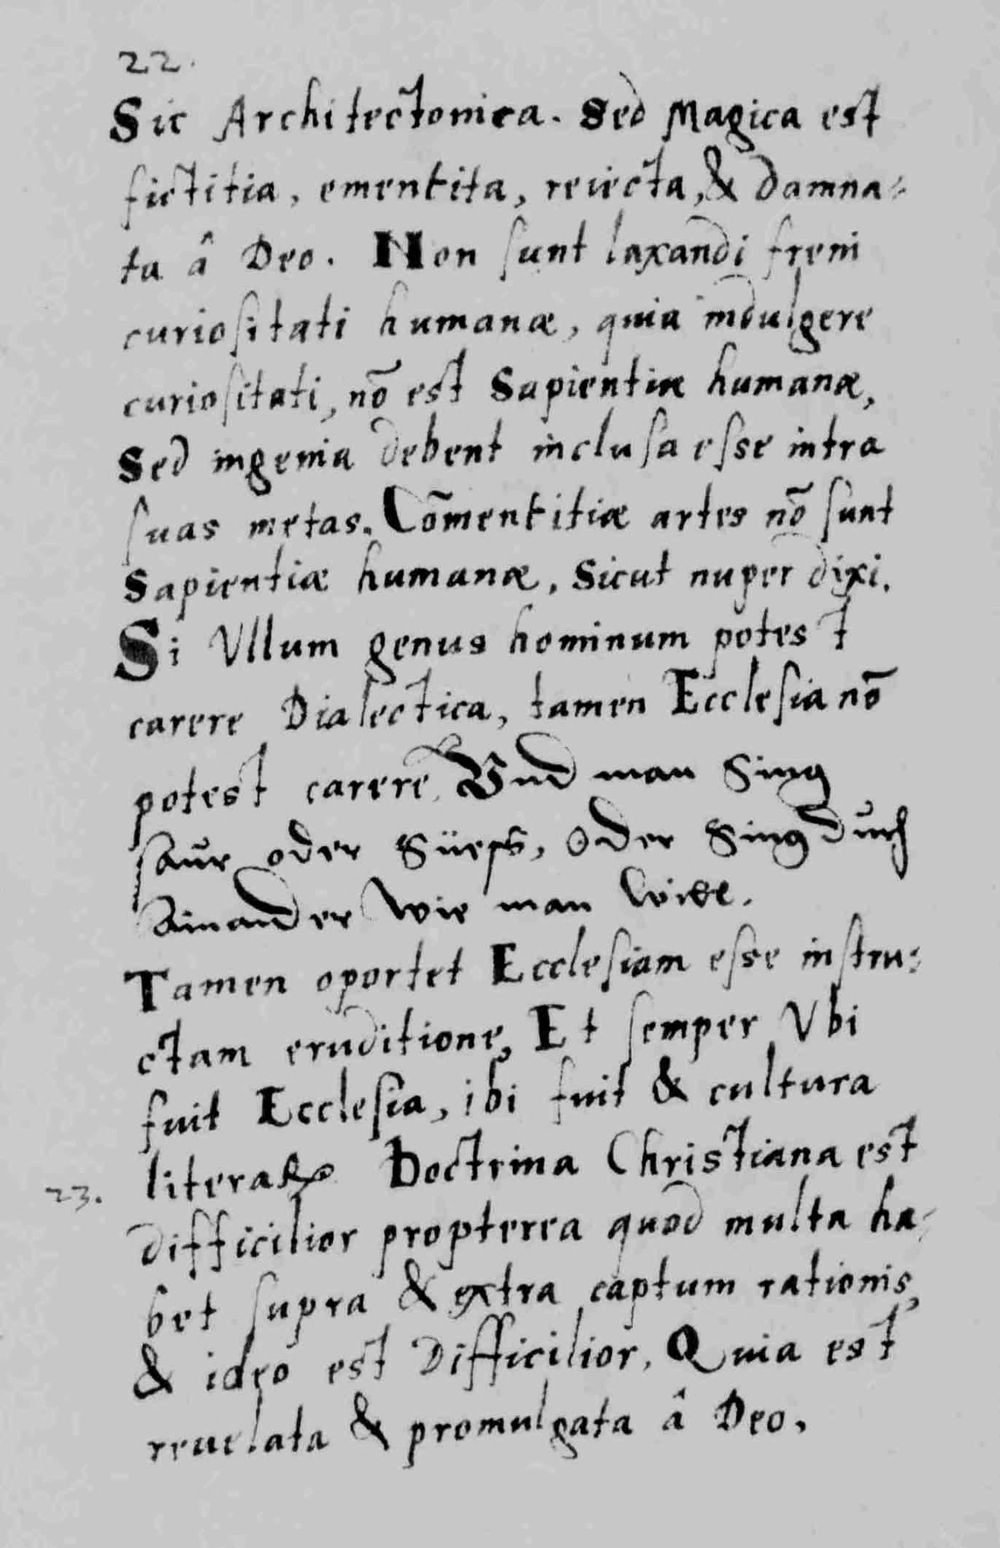 22.
Sic Architectonica. Sed Magica est
fictitia, ementita, reiecta, & damna=
ta â Deo. Non sunt laxandi freni
curiositati humanæ, quia indulgere
curiositati, nō est Sapientiæ humanæ,
Sed ingenia debent inclusa esse intra
suas metas. Cōmentitiæ artes nō sunt
Sapientiæ humanæ, Sicut nuper dixi.
Si Vllum genus hominum potest
carere Dialectica, tamen Ecclesia nō
potest carere. Vnd man Sing
saur oder Süeß, Oder Sing durch
Ainander wie man will.
Tamen oportet Ecclesiam esse instru=
ctam eruditione, Et semper Vbi
fuit Ecclesia, ibi fuit & cultura
literaꝝ. Doctrina Christiana est
23.
difficilior propterea quod multa ha=
bet supra & extra captum rationis,
& ideo est Difficilior, Quia est
reuelata & promulgata â Deo,